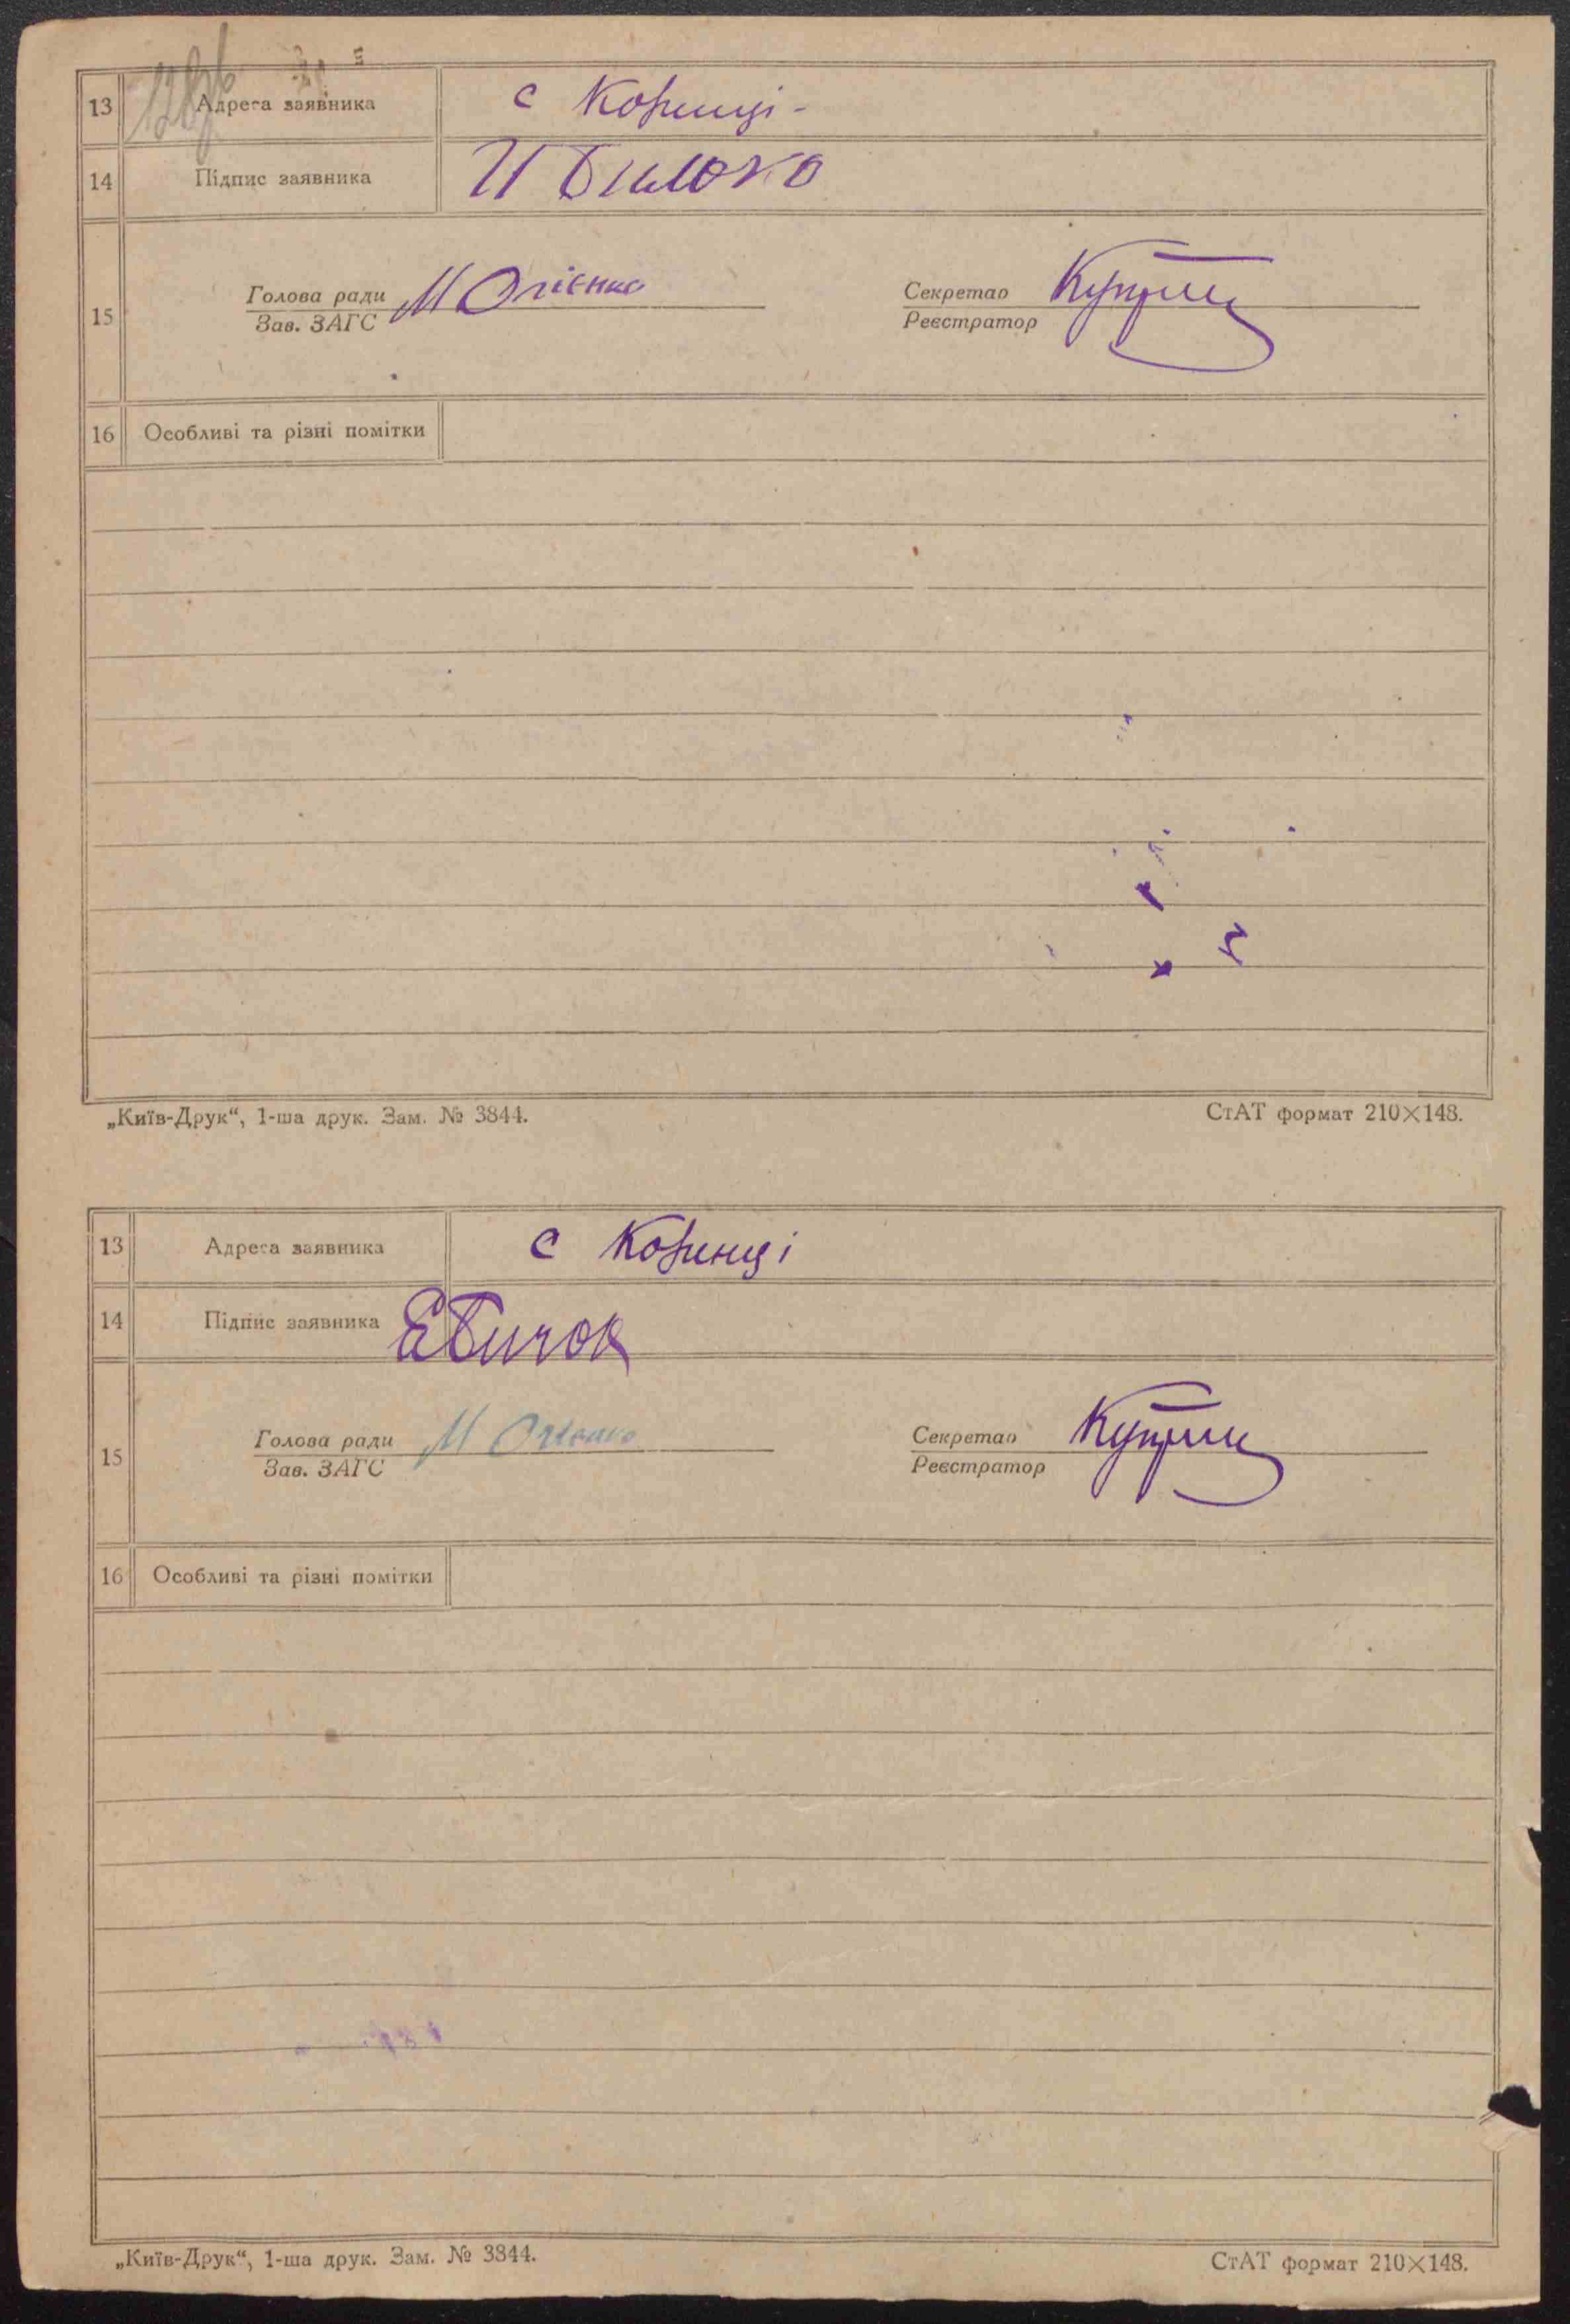 13 Адреса заявника с Коринці -
14 Підпис заявника
15 Голова ради М Огієнко Секретар
Зав. ЗАГС Реєстратор
16 Особливі та різні помітки
„Київ-Друк“, 1-ша друк. Зам. № 3844. СтАТ формат 210×148.
13 Адреса заявника с Коринці
14 Підпис заявника Е Бичок
15 Голова ради М Огієнко Секретар
Зав. ЗАГС Реєстратор
16 Особливі та різні помітки
„Київ-Друк“, 1-ша друк. Зам. № 3844. СтАТ формат 210×148.